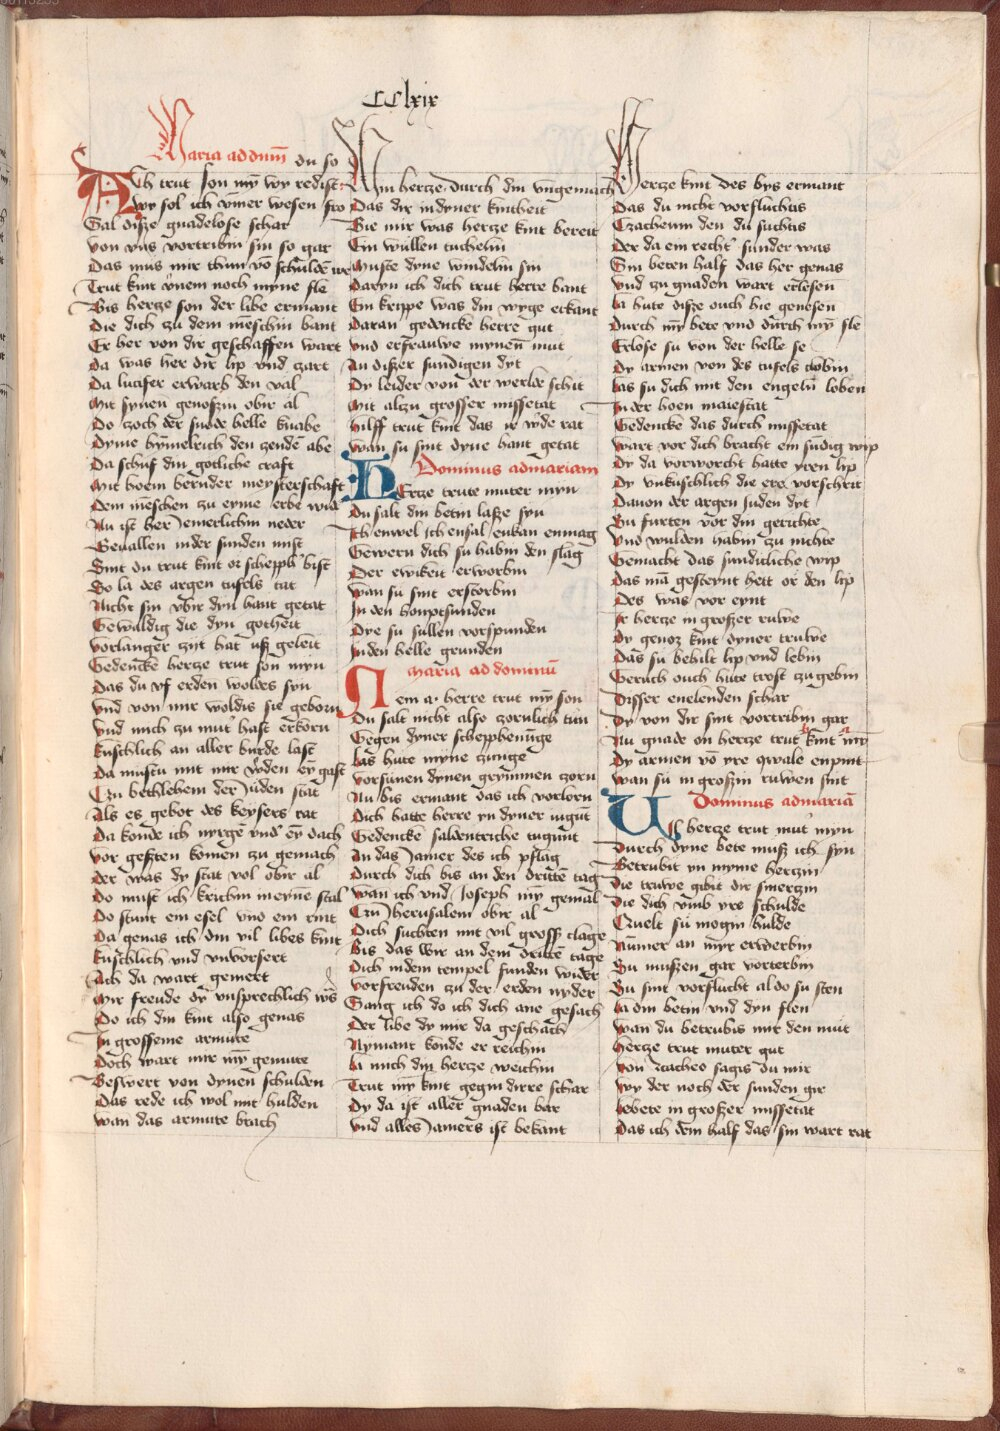 CClxix
Maria ad dnm̄ du so
Ach trut son mȳ wy redist
wy sol ich ȳmer wesen fro
Sal disze gnadelose schar
von vns vortribin sin so gar
Das mus mir thun vō schuldē we
Trut kint vnem noch myne fle
Bis hertze son der libe ermant
Die dich zu dem mēschin bant
Er her von dir geschaffen wart
Da was her dir lip vnd zart
Da lucifer erwarb den val
Mit synen genoszin obir al
Do zoch der snode helle knabe
Dyme hȳmelrich den zendē abe
Da schuf din gotliche craft
Mit hoem bernder meysterschaft
Dem mēschen zu eyme erbe wid'
Nu ist her Jemerlichin neder
Gevallen in der sunden mist
Sint du trut kint or scheppher bist
So la des argen tufels tat
Nicht sin vbir dyn hant getat
Gewaldig die dyn gotheit
vorlanger zyt hat usz geleit
Gedencke hertze trut son myn
Das du vf erden woldes syn
vnd von mir woldis sie geborn
vnd mich zu mut' hast erkorn
kuschlich an aller burde last
Da mustu mit mir wden ey gast
Czu bethlehem der Juden stat
Als es gebot des keysers rat
Da konde ich nyrgē vnd' ey dach
vor gesten komen zu gemach
Der was dy stat vol obir al
Do must ich krichin in eynē stal
Do stunt ein esel vnd ein rint
Da genas ich din vil libes kint
kuschlich vnd vnvorsert
Ach da wart gemert
Mir freude dy vnsprechlich ws
Do ich din kint also genas
In grosseme armute
Doch wart mir mȳ gemute
Beswert von dynen schulden
Das rede ich wol mit hulden
wan das armute brach
Min hertze durch din vngemach
Das dir in dyner kintheit
Wie mir was hertze kint bereit
Ein wullen tuchelin
Muste dyne windelin sin
Daryn ich dich trut herre bant
Ein krippe was din wyge erkant
Daran gedencke herre gut
vnd erfrauwe mynen mut
An diszer sundigen dyt
Dy leider von der werlde schit
Mit alzu grosser missetat
hilff trut kint das ir wde rat
wan su sint dyne hant getat
Dominus ad mariam
Hertze trute muter myn
Du salt din betin lasze syn
Ich enwel ich ensal enkan enmag
Gewern dich su habin den slag
Der ewikeit erworbin
wan su sint erstorbin
In den houptsunden
Dye su sullen vorspunden
In den helle grunden
maria ad dominū
Nein a herre trut mȳ son
Du salt nicht also zornlich tun
Gegen dyner scheppheunge
Las hute myne zunge
vorsunen dynen grymmen zorn
Nu bis ermant das ich vorlorn
Dich hatte herre yn dyner iugūt
Gedencke saldenriche tugunt
An das Jamer des ich pflag
Durch dich bis an den drittē tag
wan ich vnd Joseph mȳ gemal
Czu Jherusalem obir al
Dich suchten mit vil grosz clage
Bis das wir an dem drittē tage
Dich in dem tempel funden wider
vorfreuden zu der erden nyder
Sang ich do ich dich ane gesach
Der libe dy mir da geschach
Nymant konde er reichin
la mich din hertze weichin
Trut mȳ kint gegin dirre schar
Dy da ist aller gnaden bar
vnd alles Jamers ist bekant
Hertze kint des bys ermant
Das du nicht vorfluchtis
Czacheum den du suchtis
Der da ein recht' sunder was
Sin beten half das her genas
Vnd zu gnaden wart erlesen
la hute disze ouch hie genesen
Durch mȳ bete vnd durch mȳ fle
Erlose su von der helle se
Dy armen von des tufels clobin
las su dich mit den engeln loben
In der hoen maiestat
Gedencke das durch missetat
wart vor dich bracht ein sūdig wip
Dy da vorworcht hatte yren lip
Dy vnkuschlich die ere vorschrit
Dauon der argen Juden dyt
Su furten vor din gerichte
Vnd wulden habin zu nichte
Gemacht das suntliche wip
Das mā gesteynt hett or den lip
Des was vor eynt
Ir hertze in groszer ruwe
Dy genoz kint dyner truwe
Das su behilt lip vnd lebin
Geruch ouch hute trost zu gebin
Disser enelenden schar
Dy von dir sint vortribin gar
Nu gnade on hertze trut kint mȳ
Dy armen vō yre qwale enpint
wan su in groszin ruwen sint
Dominus ad mariā
Uch hertze trut mut' myn
Durch dyne bete musz ich syn
Betrubit yn myme hertzin
Die truwe gibit dir smertzin
Die dich vmb yre schulde
Quelt su mogin hulde
Nūmer an myr erwerbin
Su muszen gar vorterbin
Su sint vorflucht aldo su sten
la din betin vnd dyn flen
wan du betrubis mir den mut
hertze trut muter gut
von zacheo sagis du mir
wy der noch der sunden gir
lebete in groszer missetat
Das ich dem half das sin wart rat